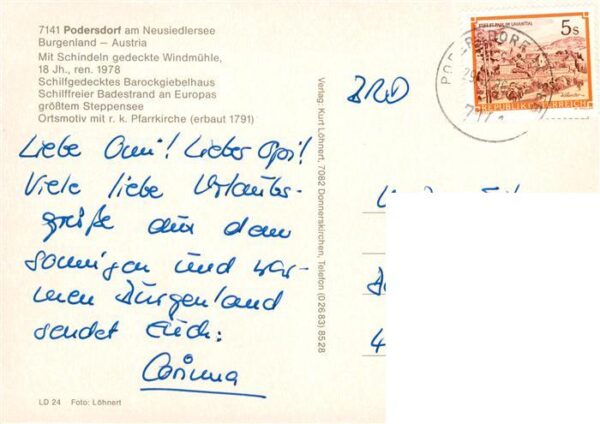 7141 Podersdorf am Neusiedlersee
Burgenland – Austria
Mit Schindeln gedeckte Windmühle,
18 Jh., ren. 1978
Schilfgedecktes Barockgiebelhaus
Schilffreier Badestrand an Europas
größtem Steppensee
Ortsmotiv mit r. k. Pfarrkirche (erbaut 1791)
Liebe Omi! Lieber Opi!
Viele liebe Urlaubs-
grüße aus dem
sonnigen und war-
men Burgenland
sendet Euch:
Corinna
LD 24 Foto: Löhnert
Verlag: Kurt Löhnert, 7082 Donnerskirchen, Telefon (0 26 83) 85 28
BRD
STIFT ST. PAUL IM LAVANTTAL
5s
REPUBLIK ÖSTERREICH